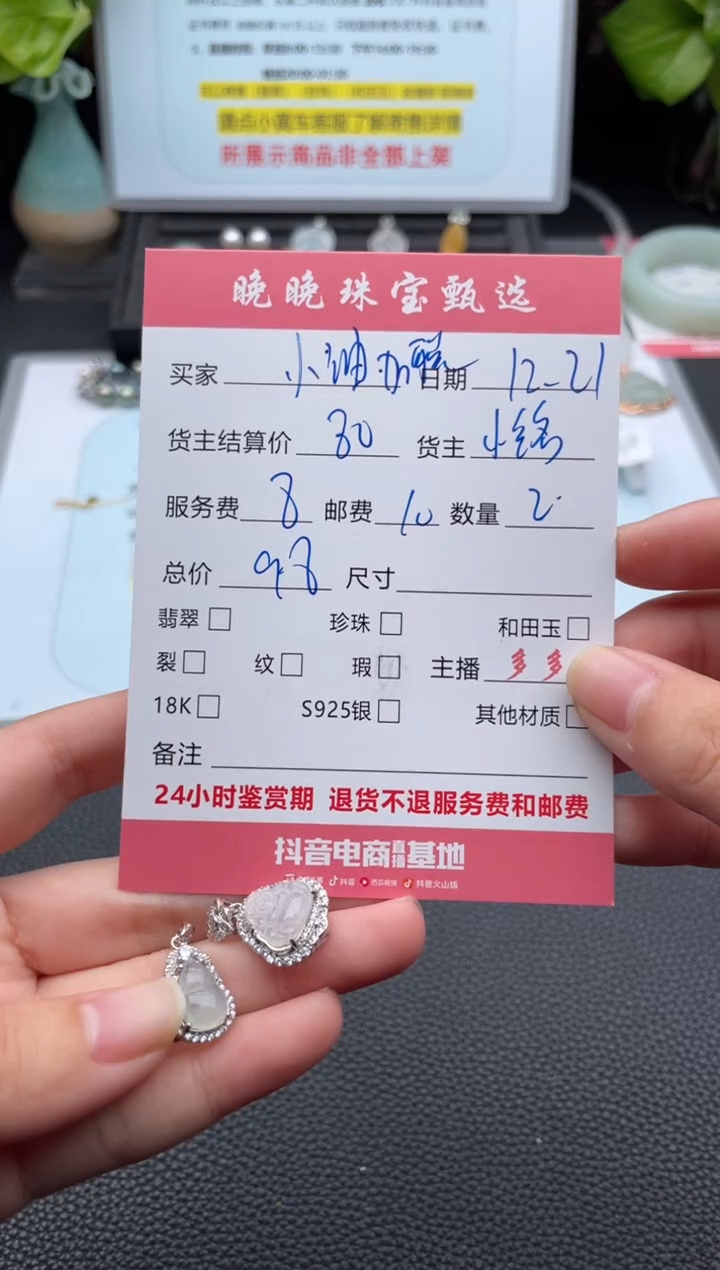 所展示商品非全部上架
晚晚珠宝甄选
买家 小 日期 12-21
货主结算价 80 货主 小
服务费 8 邮费 10 数量 2
总价 98 尺寸
翡翠 珍珠 和田玉
裂 纹 瑕 主播 多多
18K S925银 其他材质
备注
24小时鉴赏期 退货不退服务费和邮费
抖音电商直播基地
抖音 西瓜视频 抖音火山版